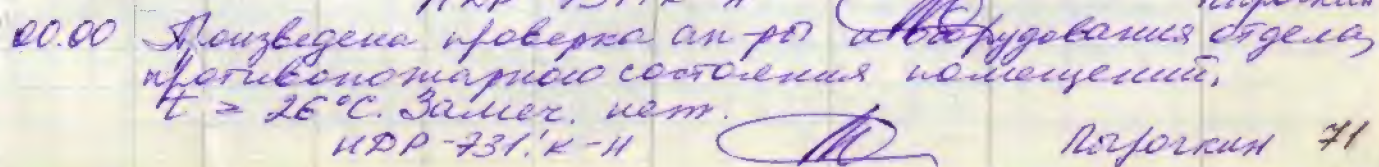 00.00 Произведена проверка ап-ры и оборудования отдела,
противопожарного состояния помещений.
t = 26°С. Замеч. нет.
НДР-731: к-н Пырочкин 71